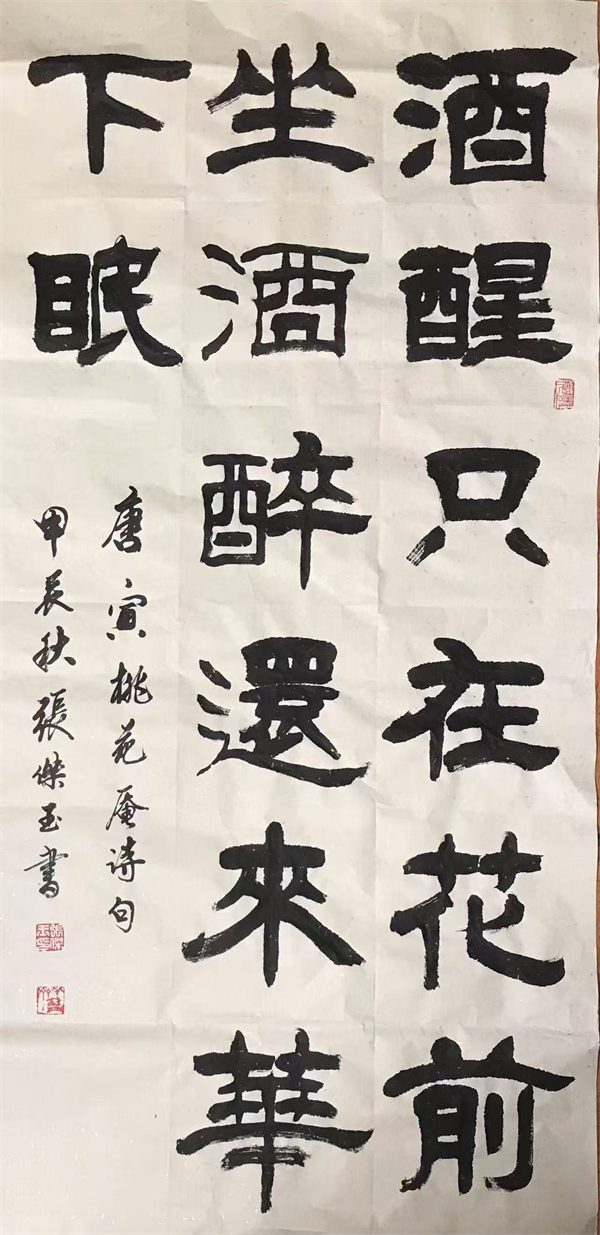 酒醒只在花前
坐酒醉還來華
下眠
唐寅桃花庵詩句
甲辰秋張傑玉書